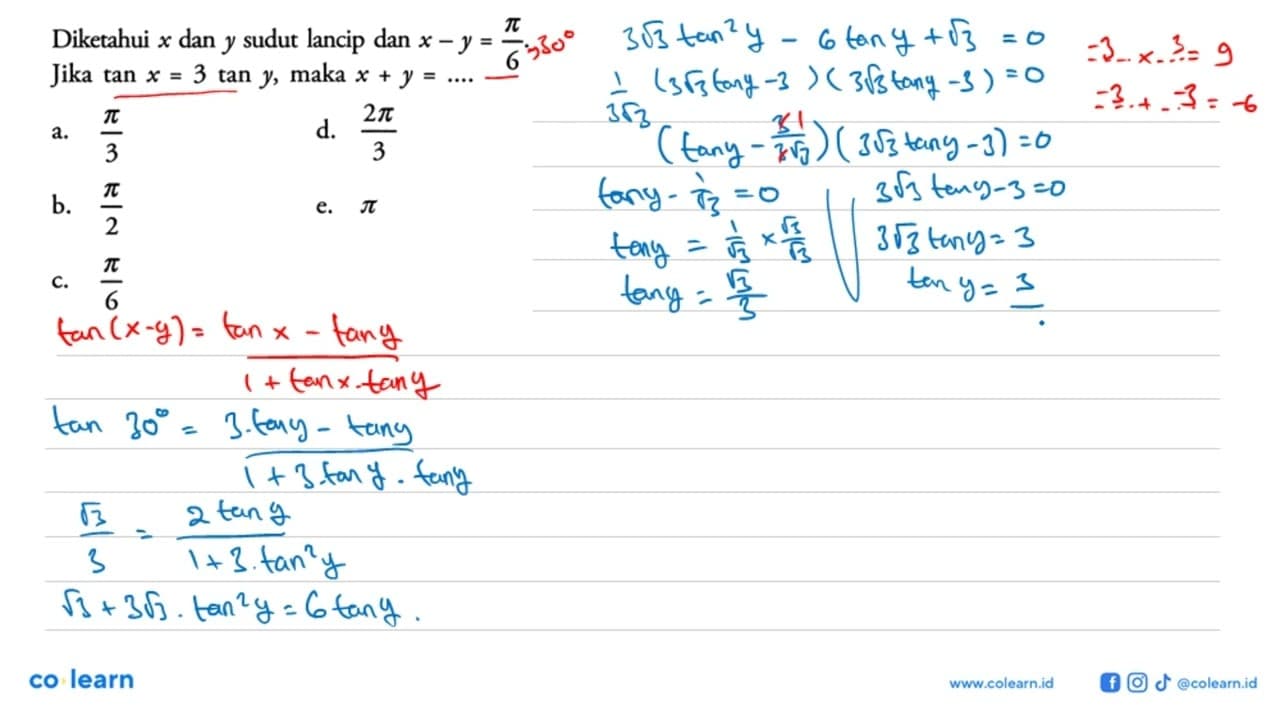 Diketahui x dan y sudut lancip dan x − y = π/6. →30°
Jika tan x = 3 tan y, maka x + y = ....
a. π/3
b. π/2
c. π/6
d. 2π/3
e. π
tan(x-y) = (tan x - tan y)/(1 + tan x . tan y)
tan 30° = (3.tan y - tan y)/(1 + 3.tan y . tan y)
√3/3 = 2 tan y/(1 + 3.tan²y)
√3 + 3√3 . tan²y = 6 tan y .
3√3 tan²y - 6 tan y + √3 = 0
1/3√3 (3√3 tan y - 3)(3√3 tan y - 3) = 0
(tan y - 3/3√3 1)(3√3 tan y - 3) = 0
tan y - 1/√3 = 0
tan y = 1/√3 × √3/√3
tan y = √3/3
3√3 tan y - 3 = 0
3√3 tan y = 3
tan y = 3/
-3 × -3 = 9
-3 + -3 = -6
co·learn
www.colearn.id
@colearn.id